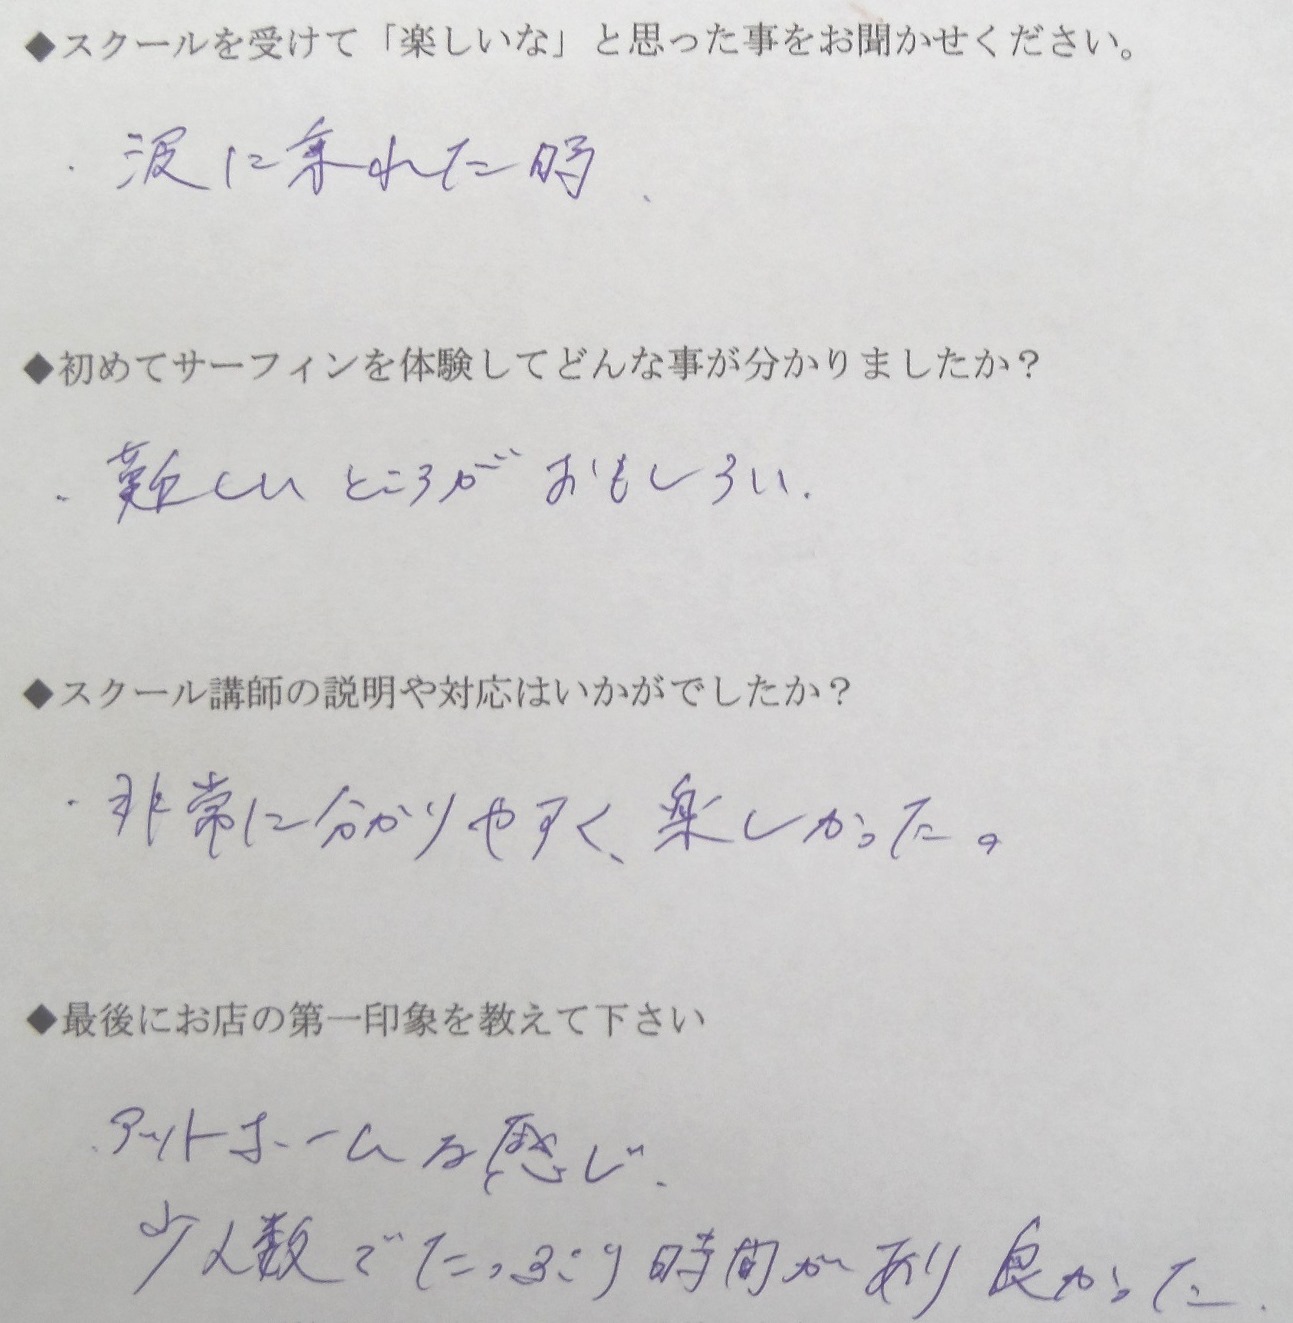 ◆スクールを受けて「楽しいな」と思った事をお聞かせください。
・波に乗れた時.
◆初めてサーフィンを体験してどんな事が分かりましたか？
・難しいところがおもしろい.
◆スクール講師の説明や対応はいかがでしたか？
・非常に分かりやすく、楽しかった。
◆最後にお店の第一印象を教えて下さい
・アットホームな感じ.
少人数でたっぷり時間があり良かった.